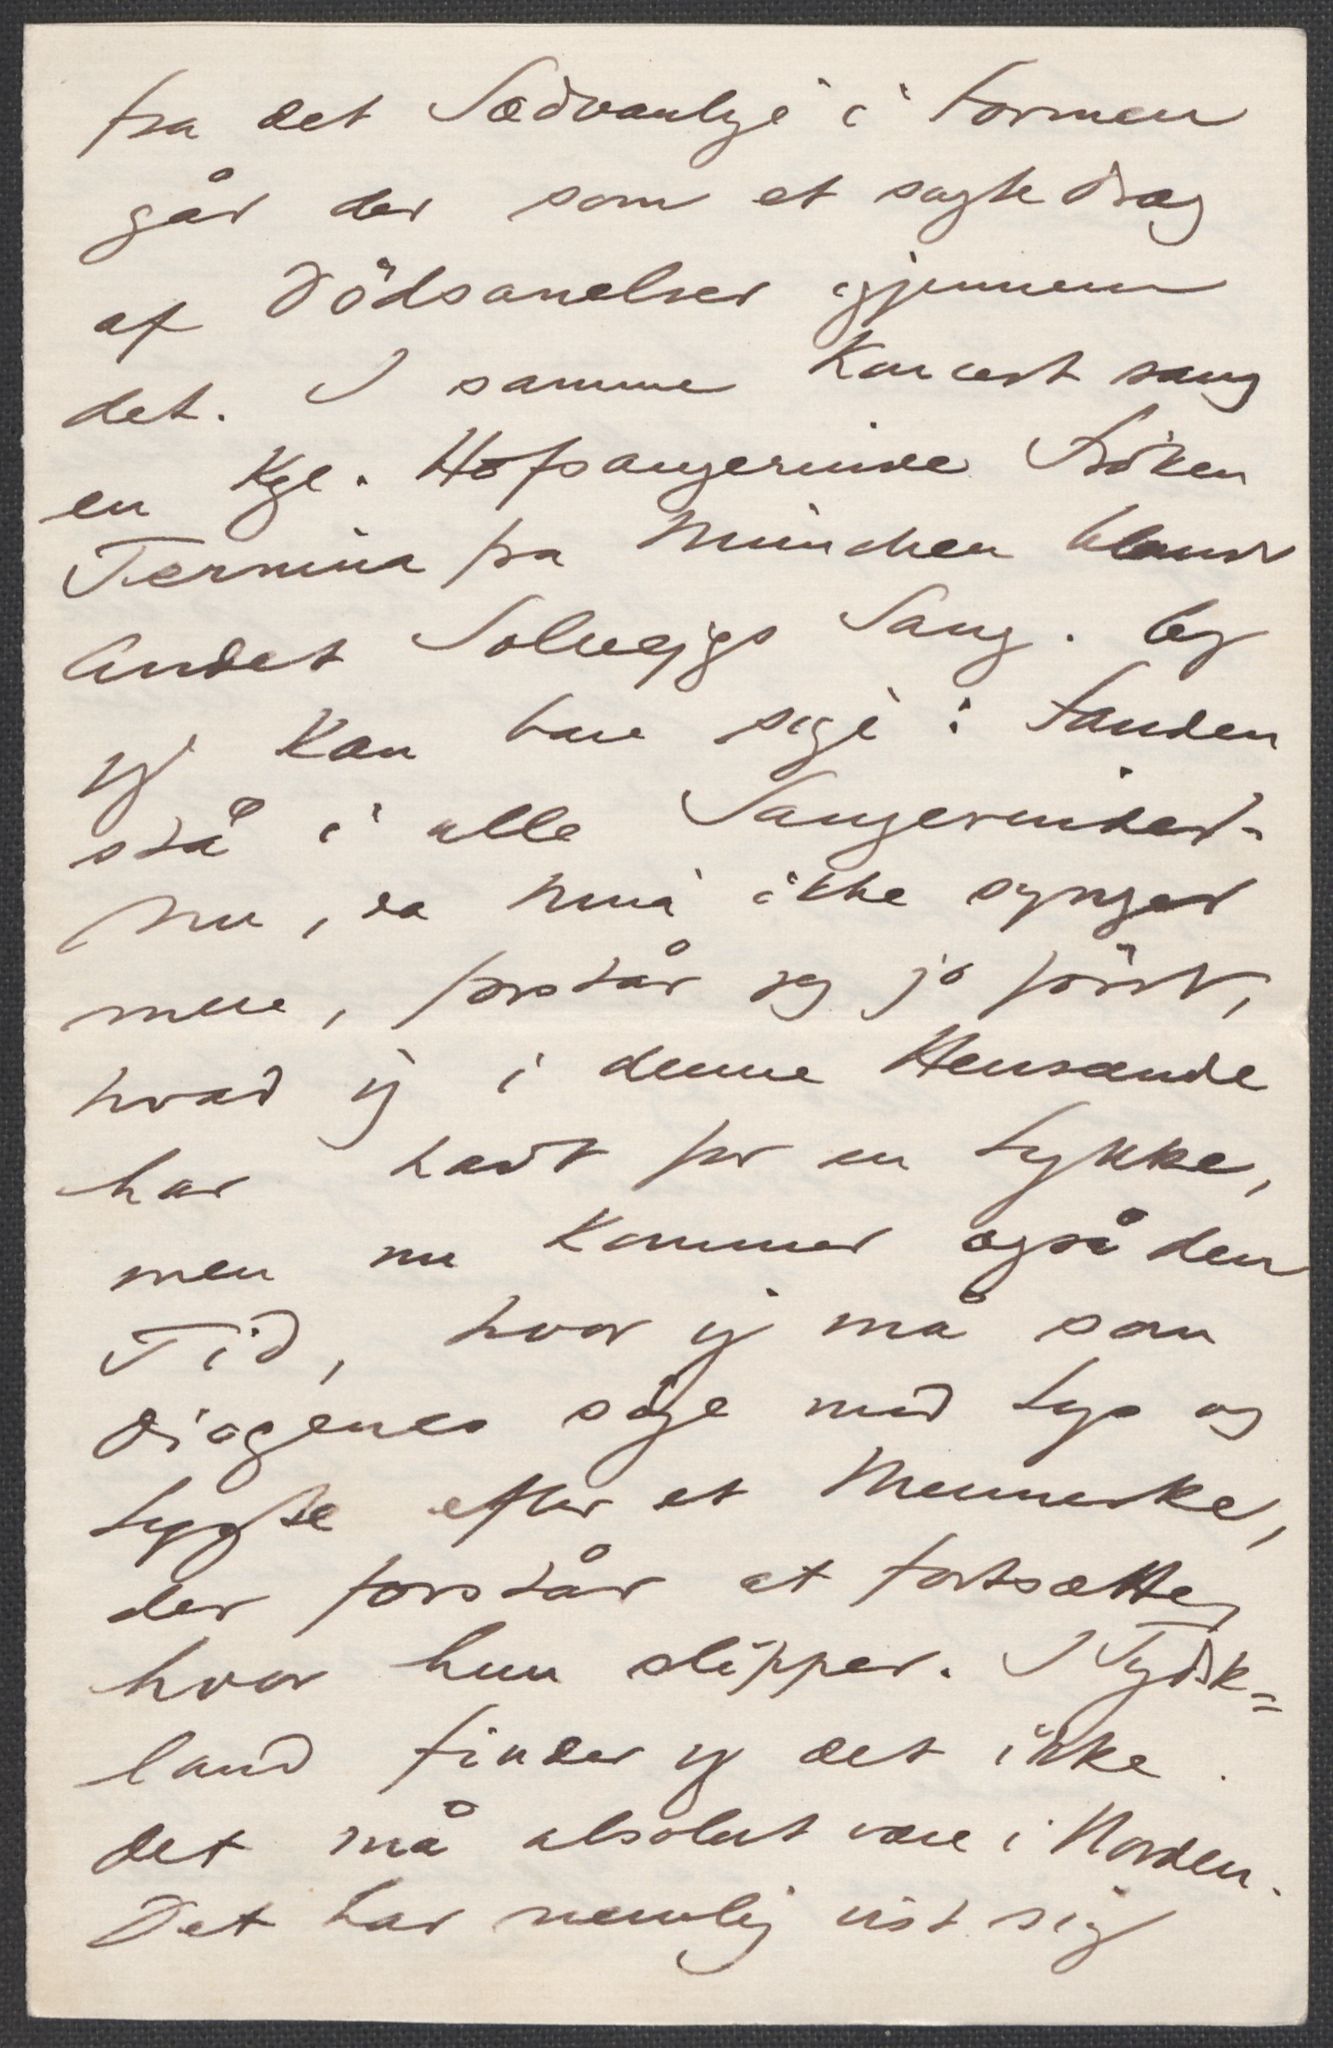 fra det Sædvanlige i Formen
går der som et sagte Drag
af Dödsanelser igjennem
det. I samme Koncert sang
en Kgl. Hofsangerinde Fröken
Ternina fra München blandt
Andet Solvejgs Sang. Og
jeg kan bare sige: Fanden
stå i alle Sangerinder.
Nu, da Nina ikke synger
mere, forstår jeg jo först,
hvad jeg i denne Henseende
har havt for en Lykke,
men nu kommer også den
Tid, hvor jeg må som
Diogenes söge med Lys og
Lygte efter et Menneske,
der forstår at fortsætte,
hvor hun slipper. I Tydsk=
land finder jeg det ikke.
Det må absolut være i Norden.
Det har nemlig vist sig